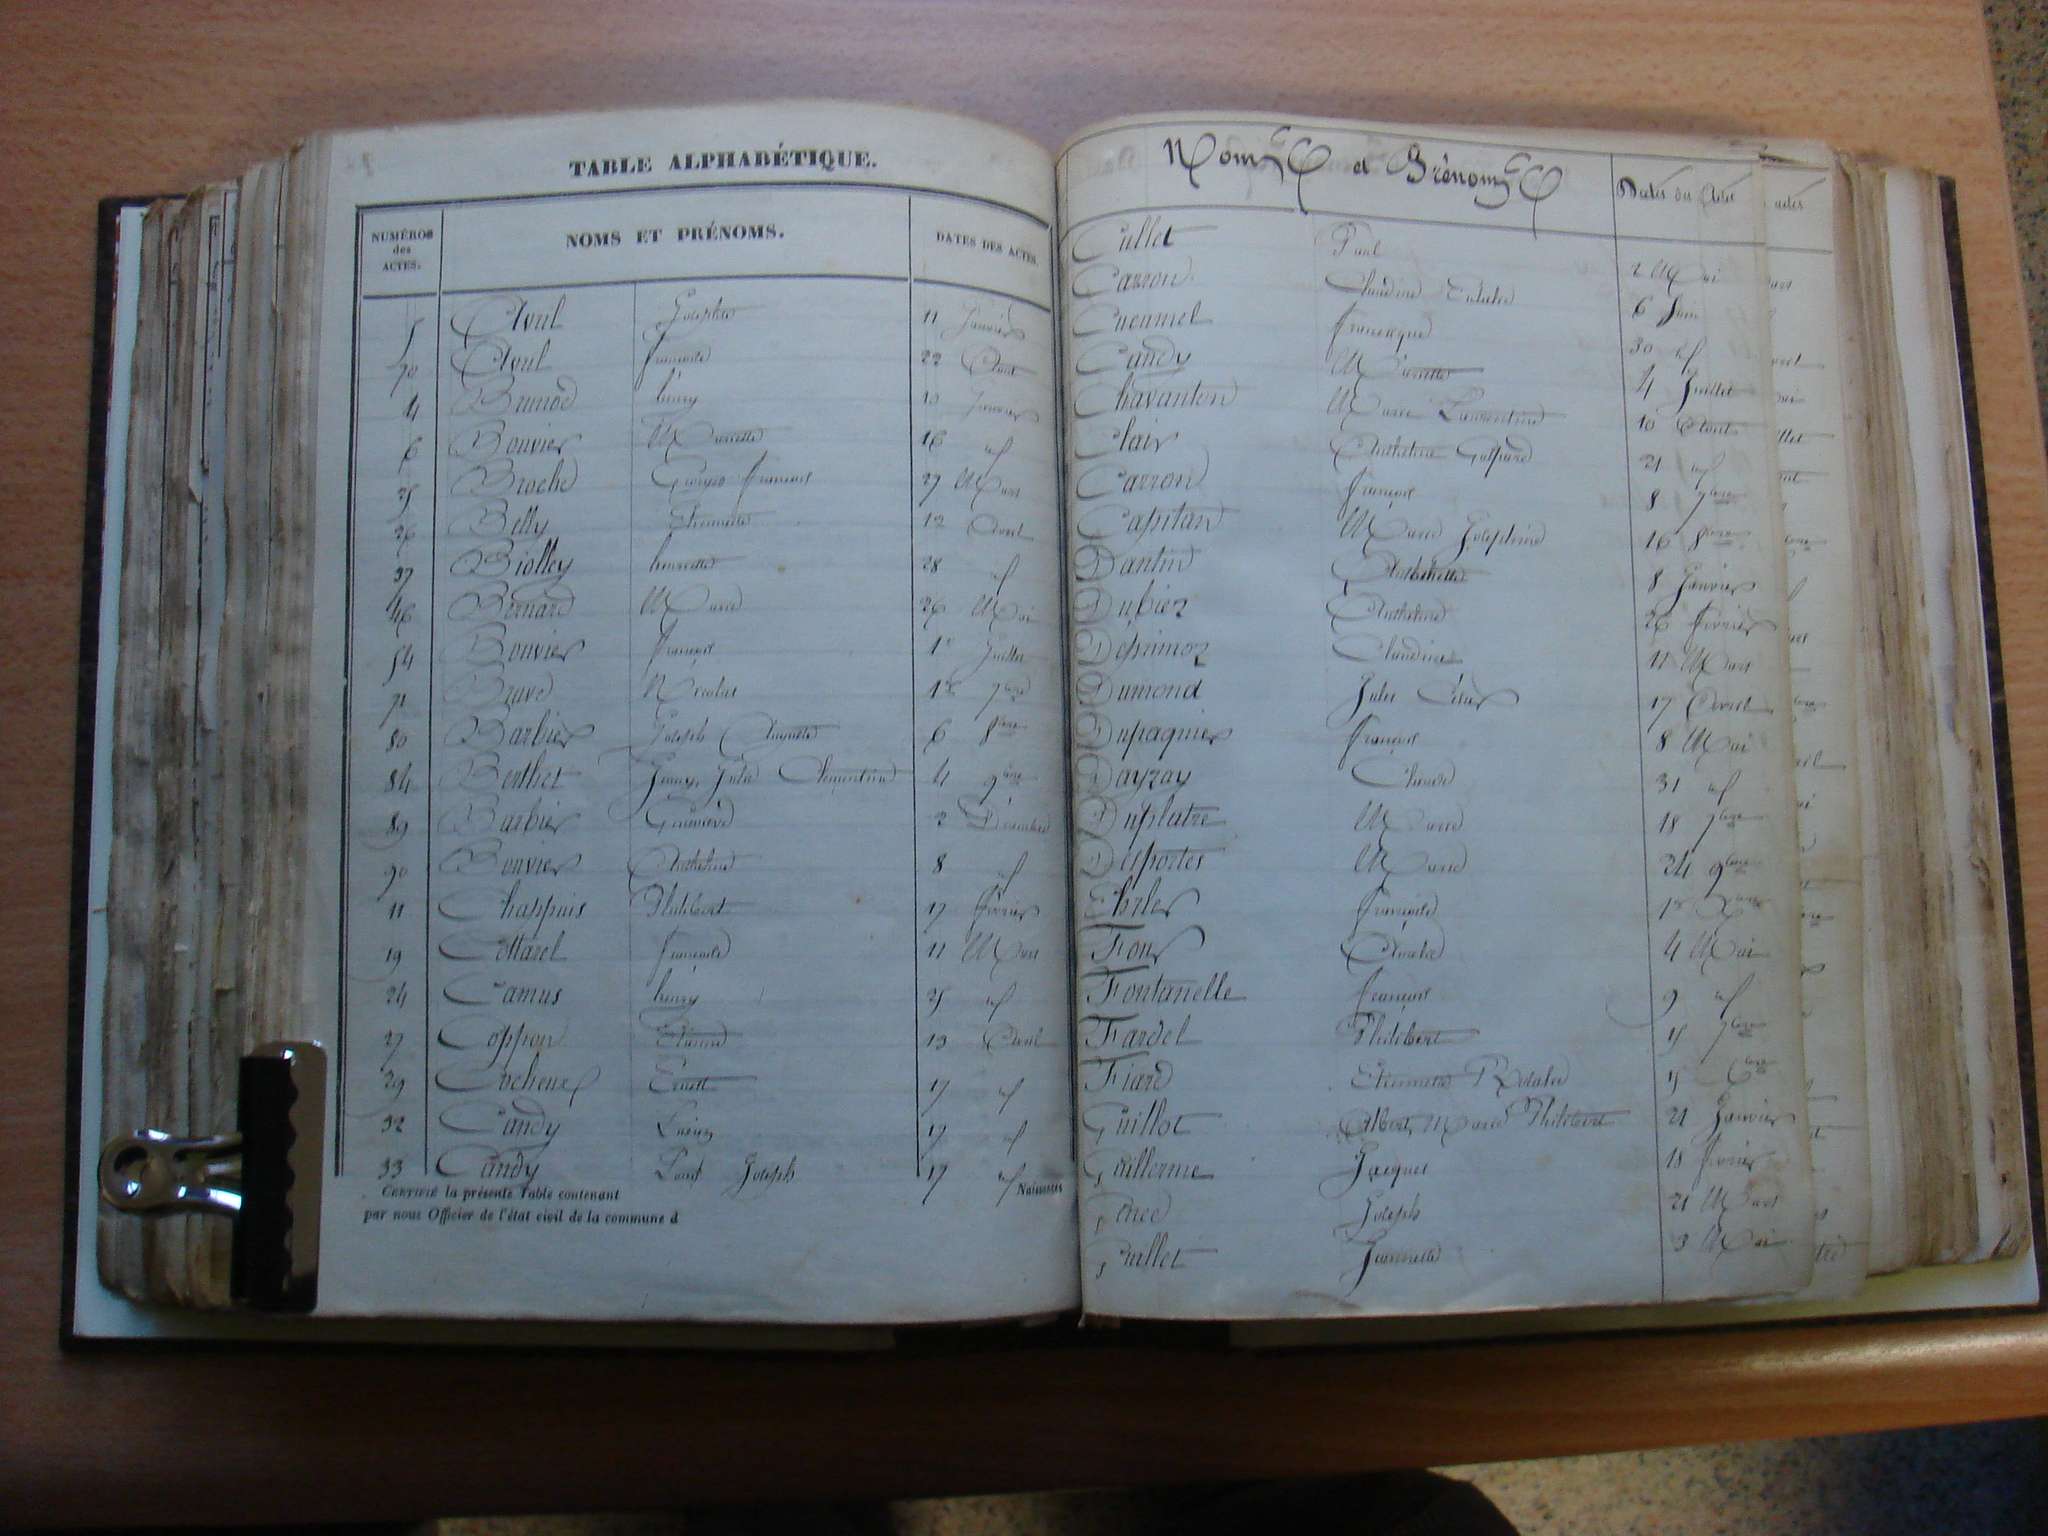 TABLE ALPHABÉTIQUE.
NUMÉROS des ACTES. NOMS ET PRÉNOMS. DATES DES ACTES.
5 Avril Josephte 11 Janvier
70 Avril françoise 22 Août
4 Brunod henry 10 Janvier
6 Bouvier Mariette 16 id
25 Broche François 27 Mars
26 Belly Etiennette 12 Avril
37 Biolley henriette 28 id
46 Bernard Marie 26 Mai
54 Bouvier françois 1er Juillet
71 Brave Nicolas 1er 7bre
80 Barbier Joseph Auguste 6 8bre
84 Berthet Jenny Julie Clémentine 4 9bre
89 Barbier Geneviève 2 Décembre
90 Bouvier Anthelme 8 id
11 Chappuis Philibert 17 février
19 Cottarel françoise 11 Mars
24 Camus henry 25 id
27 Coppon Etienne 13 Avril
29 Cocheux Ernest 17 id
32 Candy 17 id
33 Candy Louis Joseph 17 id
CERTIFIÉ la présente Table contenant Naissances
par nous Officier de l'état civil de la commune d
Noms et Prénoms Dates des Actes
Cullet Paul 2 Mai
Carron Claudine 6 Juin
Cucumel françoise 30 id
Candy Mariette 4 Juillet
Chavanton Marie Laurentine 10 Août
Clair Anthelme Gaspard 21 id
Carron françois 8 7bre
Capitan Marie Joséphine 16 8bre
Dantin Anthelmette 8 Janvier
Dubiez Anthelme 26 février
Deprimoz Claudine 11 Mars
Dumond Jules 17 Avril
Dupaquier françois 8 Mai
Dayzay Claude 31 id
Duplatre Marie 18 7bre
Desportes Marie 24 9bre
françoise 1er
Four Amélie 4 Mai
Fontanelle françois 9 id
Fardel Philibert 15 7bre
Fiard Etiennette Rosalie 15
Guillot Albert, Marie Philibert 21 Janvier
Guillerme Jacques 18 février
Joseph 21 Mars
Guillet Jeannette 3 Mai